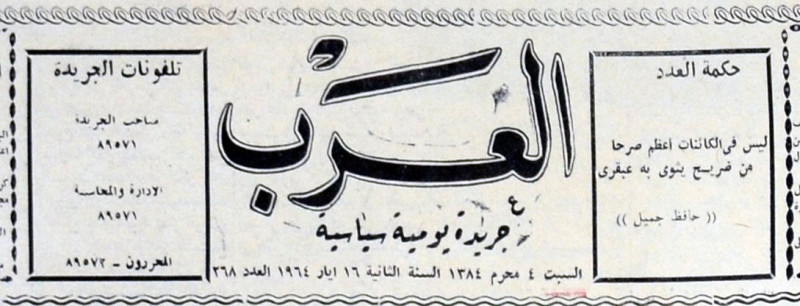 حكمة العدد
ليس في الكائنات أعظم صرحا
من ضريح يثوي به عبقري
(( حافظ جميل ))
العرب
جريدة يومية سياسية
السبت ٤ محرم ١٣٨٤ السنة الثانية ١٦ ايار ١٩٦٤ العدد ٢٦٨
تلفونات الجريدة
صاحب الجريدة
٨٩٥٧١
الادارة والمحاسبة
٨٩٥٧١
المحررون - ٨٩٥٧٢